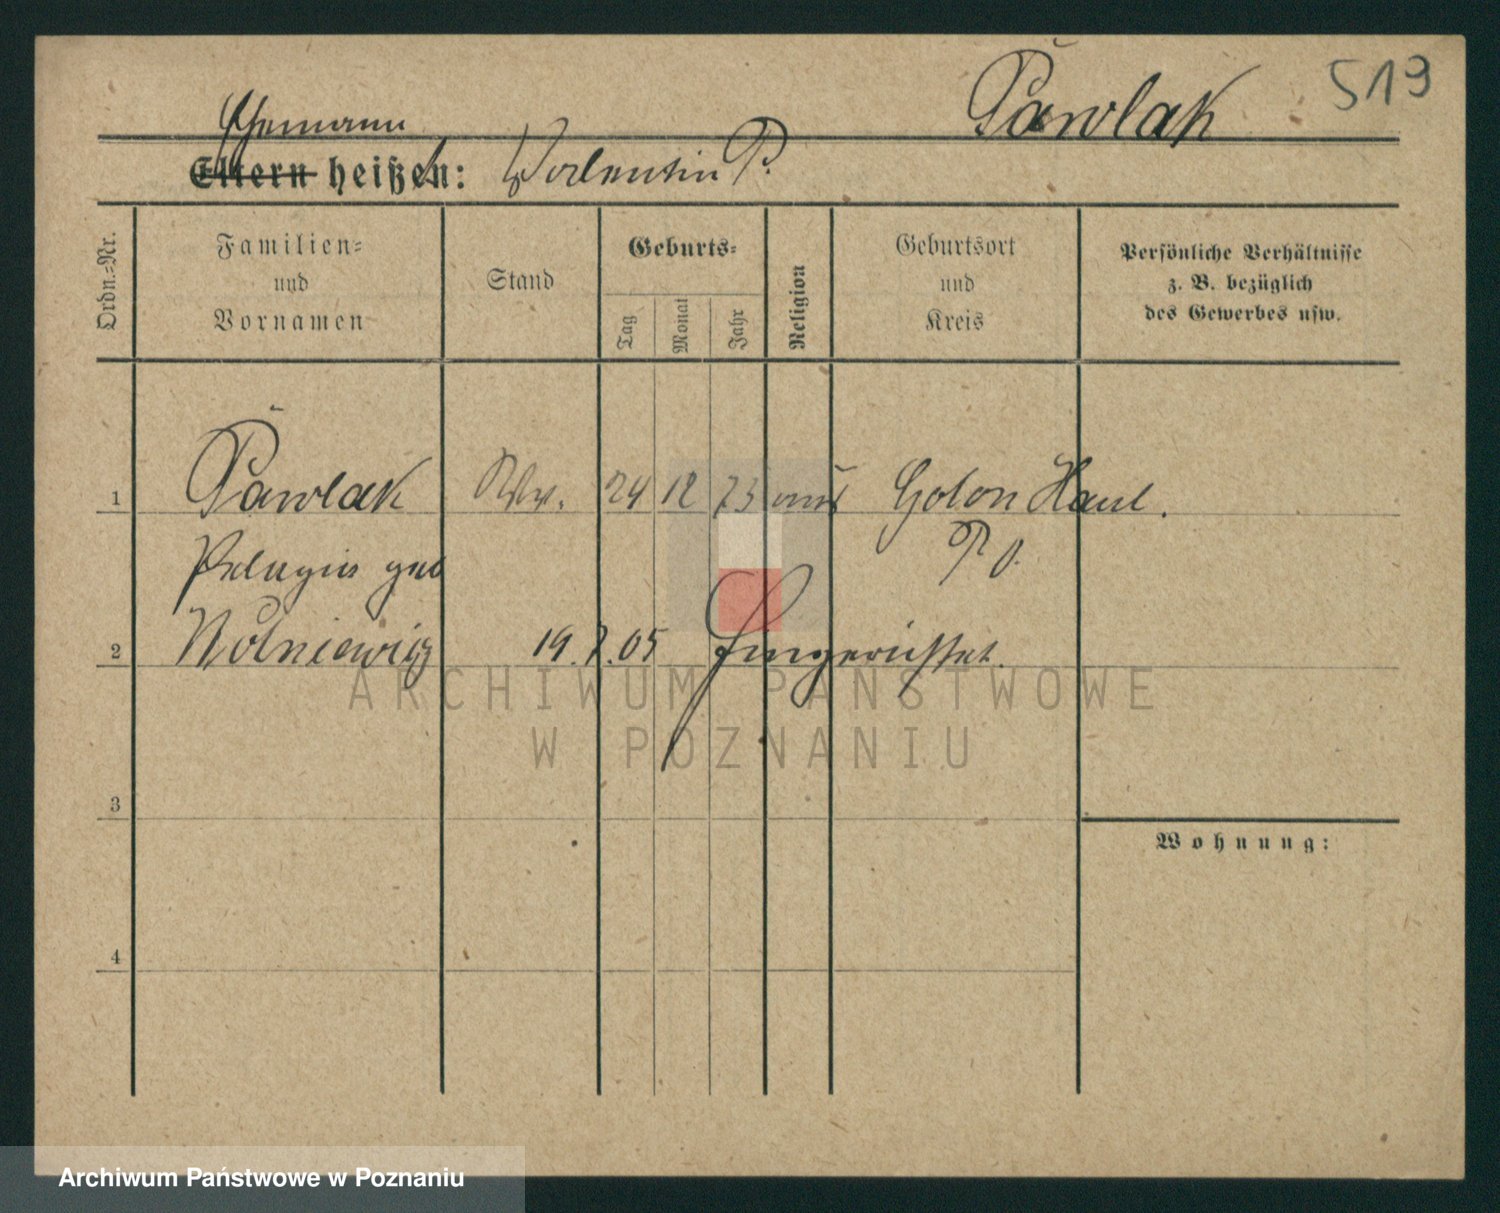 Pawlak 519
Ehemann
Eltern heißen: Valentin P.
Ordn.=Nr.
Familien=
und
Vornamen
Stand
Geburts=
Tag
Monat
Jahr
Religion
Geburtsort
und
Kreis
Persönliche Verhältnisse
z. B. bezüglich
des Gewerbes usw.
1 Pawlak Ww. 24 12 73 Golon Haul.
Pelagia geb
2 Wolniewicz 19.7.05
3
4
Wohnung:
ARCHIWUM PAŃSTWOWE
W POZNANIU
Archiwum Państwowe w Poznaniu